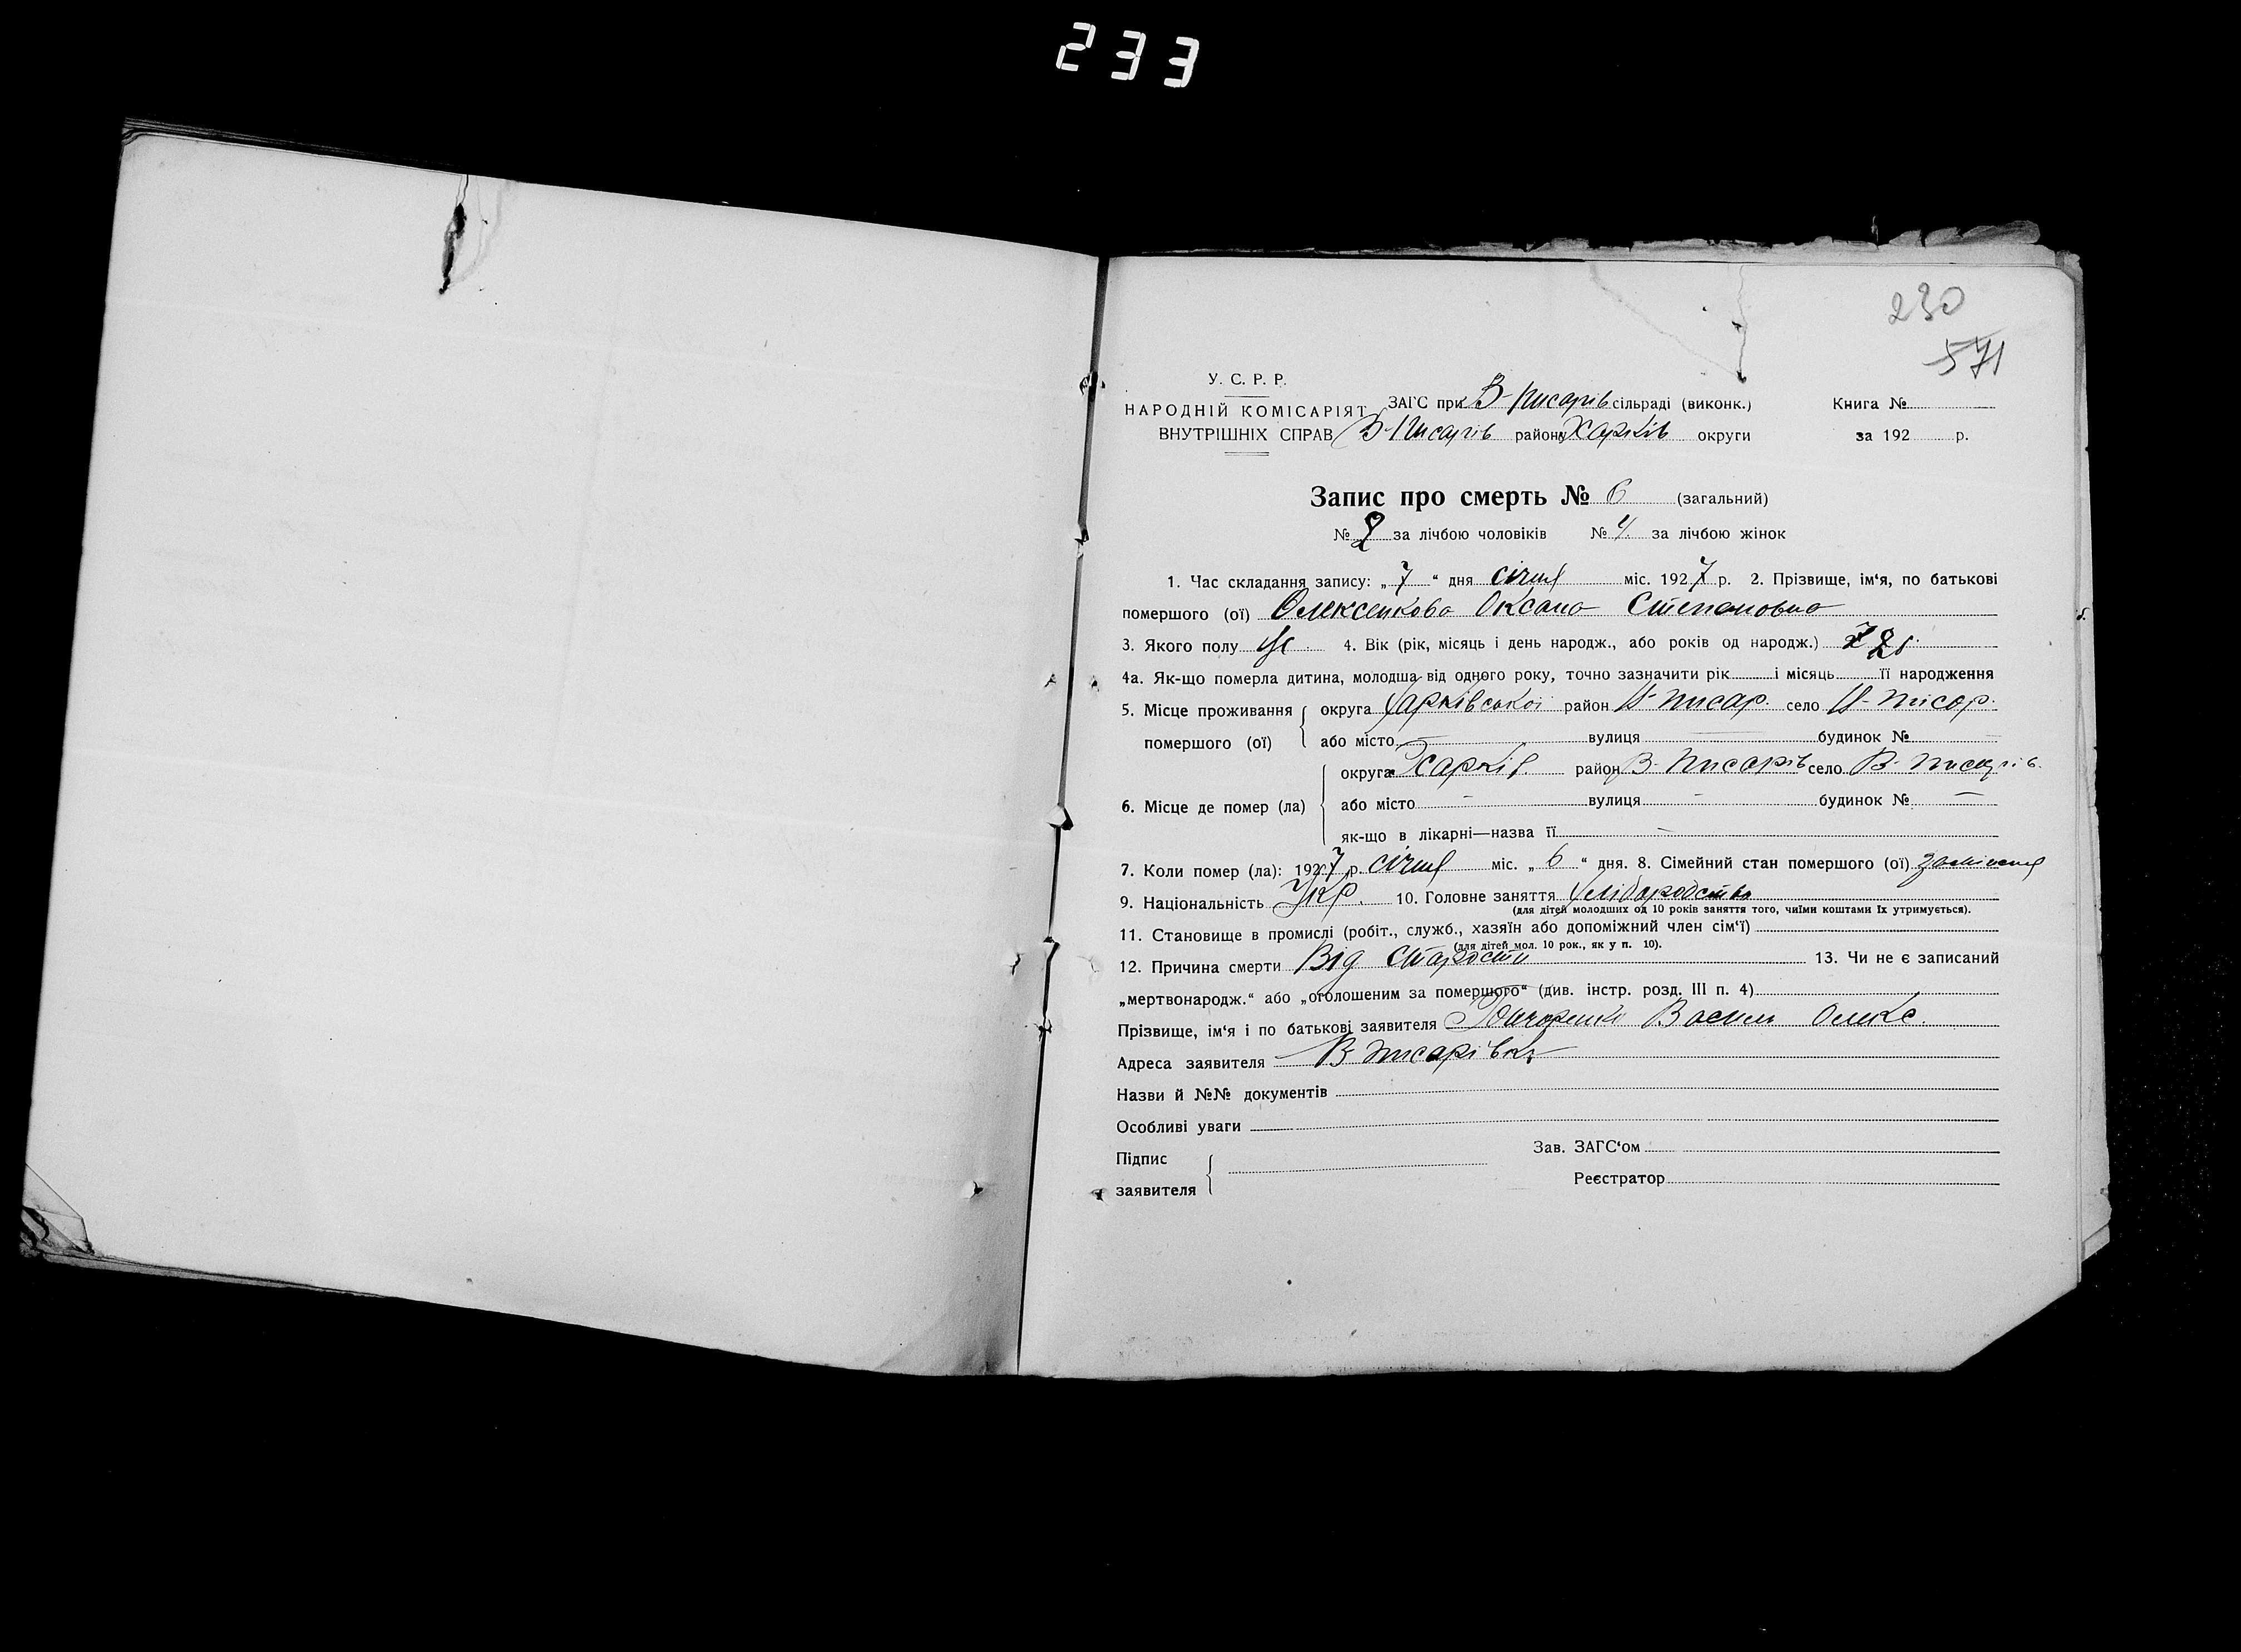 233
230
571
У. С. Р. Р.
НАРОДНІЙ КОМІСАРІЯТ
ВНУТРІШНІХ СПРАВ
ЗАГС при В-Писарів сільраді (виконк.)
В-Писарів району Харків округи
Книга №
за 192 р.
Запис про смерть № 6 (загальний)
№ 2 за лічбою чоловіків № 4. за лічбою жінок
1. Час складання запису: „7“ дня січня міс. 1927 р. 2. Прізвище, ім‘я, по батькові
помершого (ої) Олексенкова Оксана Степановна
3. Якого полу Ж. 4. Вік (рік, місяць і день народж., або років од народж.)
4а. Як-що померла дитина, молодша від одного року, точно зазначити рік і місяць її народження
5. Місце проживання помершого (ої) округа Харківської район писар. село писар.
або місто вулиця — будинок № —
6. Місце де помер (ла) округа Харків. район В-Писарів село В-писарів.
або місто – вулиця – будинок № —
як-що в лікарні—назва її –
7. Коли помер (ла): 1927 р. січня міс. „6“ дня. 8. Сімейний стан помершого (ої) заміжня
9. Національність Укр. 10. Головне заняття хліборобство
(для дітей молодших од 10 років заняття того, чиїми коштами їх утримується).
11. Становище в промислі (робіт., служб., хазяїн або допоміжний член сім‘ї)
(для дітей мол. 10 рок., як у п. 10).
12. Причина смерти Від старости 13. Чи не є записаний
„мертвонародж.“ або „оголошеним за помершого“ (див. інстр. розд. III п. 4)
Прізвище, ім‘я і по батькові заявителя Гончаренко Василь Олекс.
Адреса заявителя В-Писарівка
Назви й №№ документів
Особливі уваги
Підпис заявителя
Зав. ЗАГС‘ом
Реєстратор